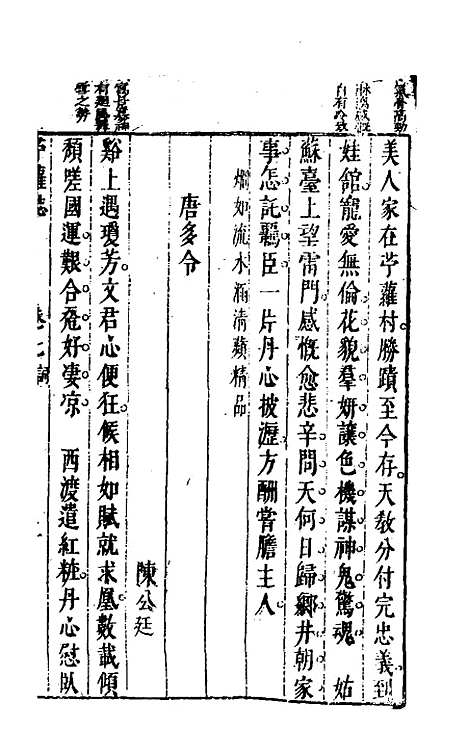 氣骨高勁
一
自有冷致
美人家在苧蘿村勝蹟至今存天教分付完忠義到
娃館寵愛無倫花貌羣妍讓色機謀神鬼驚魂　姑
蘇臺上望雷門感慨愈悲辛問天何日歸鄉井朝家
事怎託羈臣一片丹心披瀝方酬嘗膽主人
如流水涵清蘋精品
唐多令
陳公廷
有
雲之勢
谿上遇瓊芳文君心便狂候相如賦就求凰數載傾
頹嗟國運艱合卺好凄凉　西渡遣紅粧丹心慰臥
苧蘿志　卷七詞